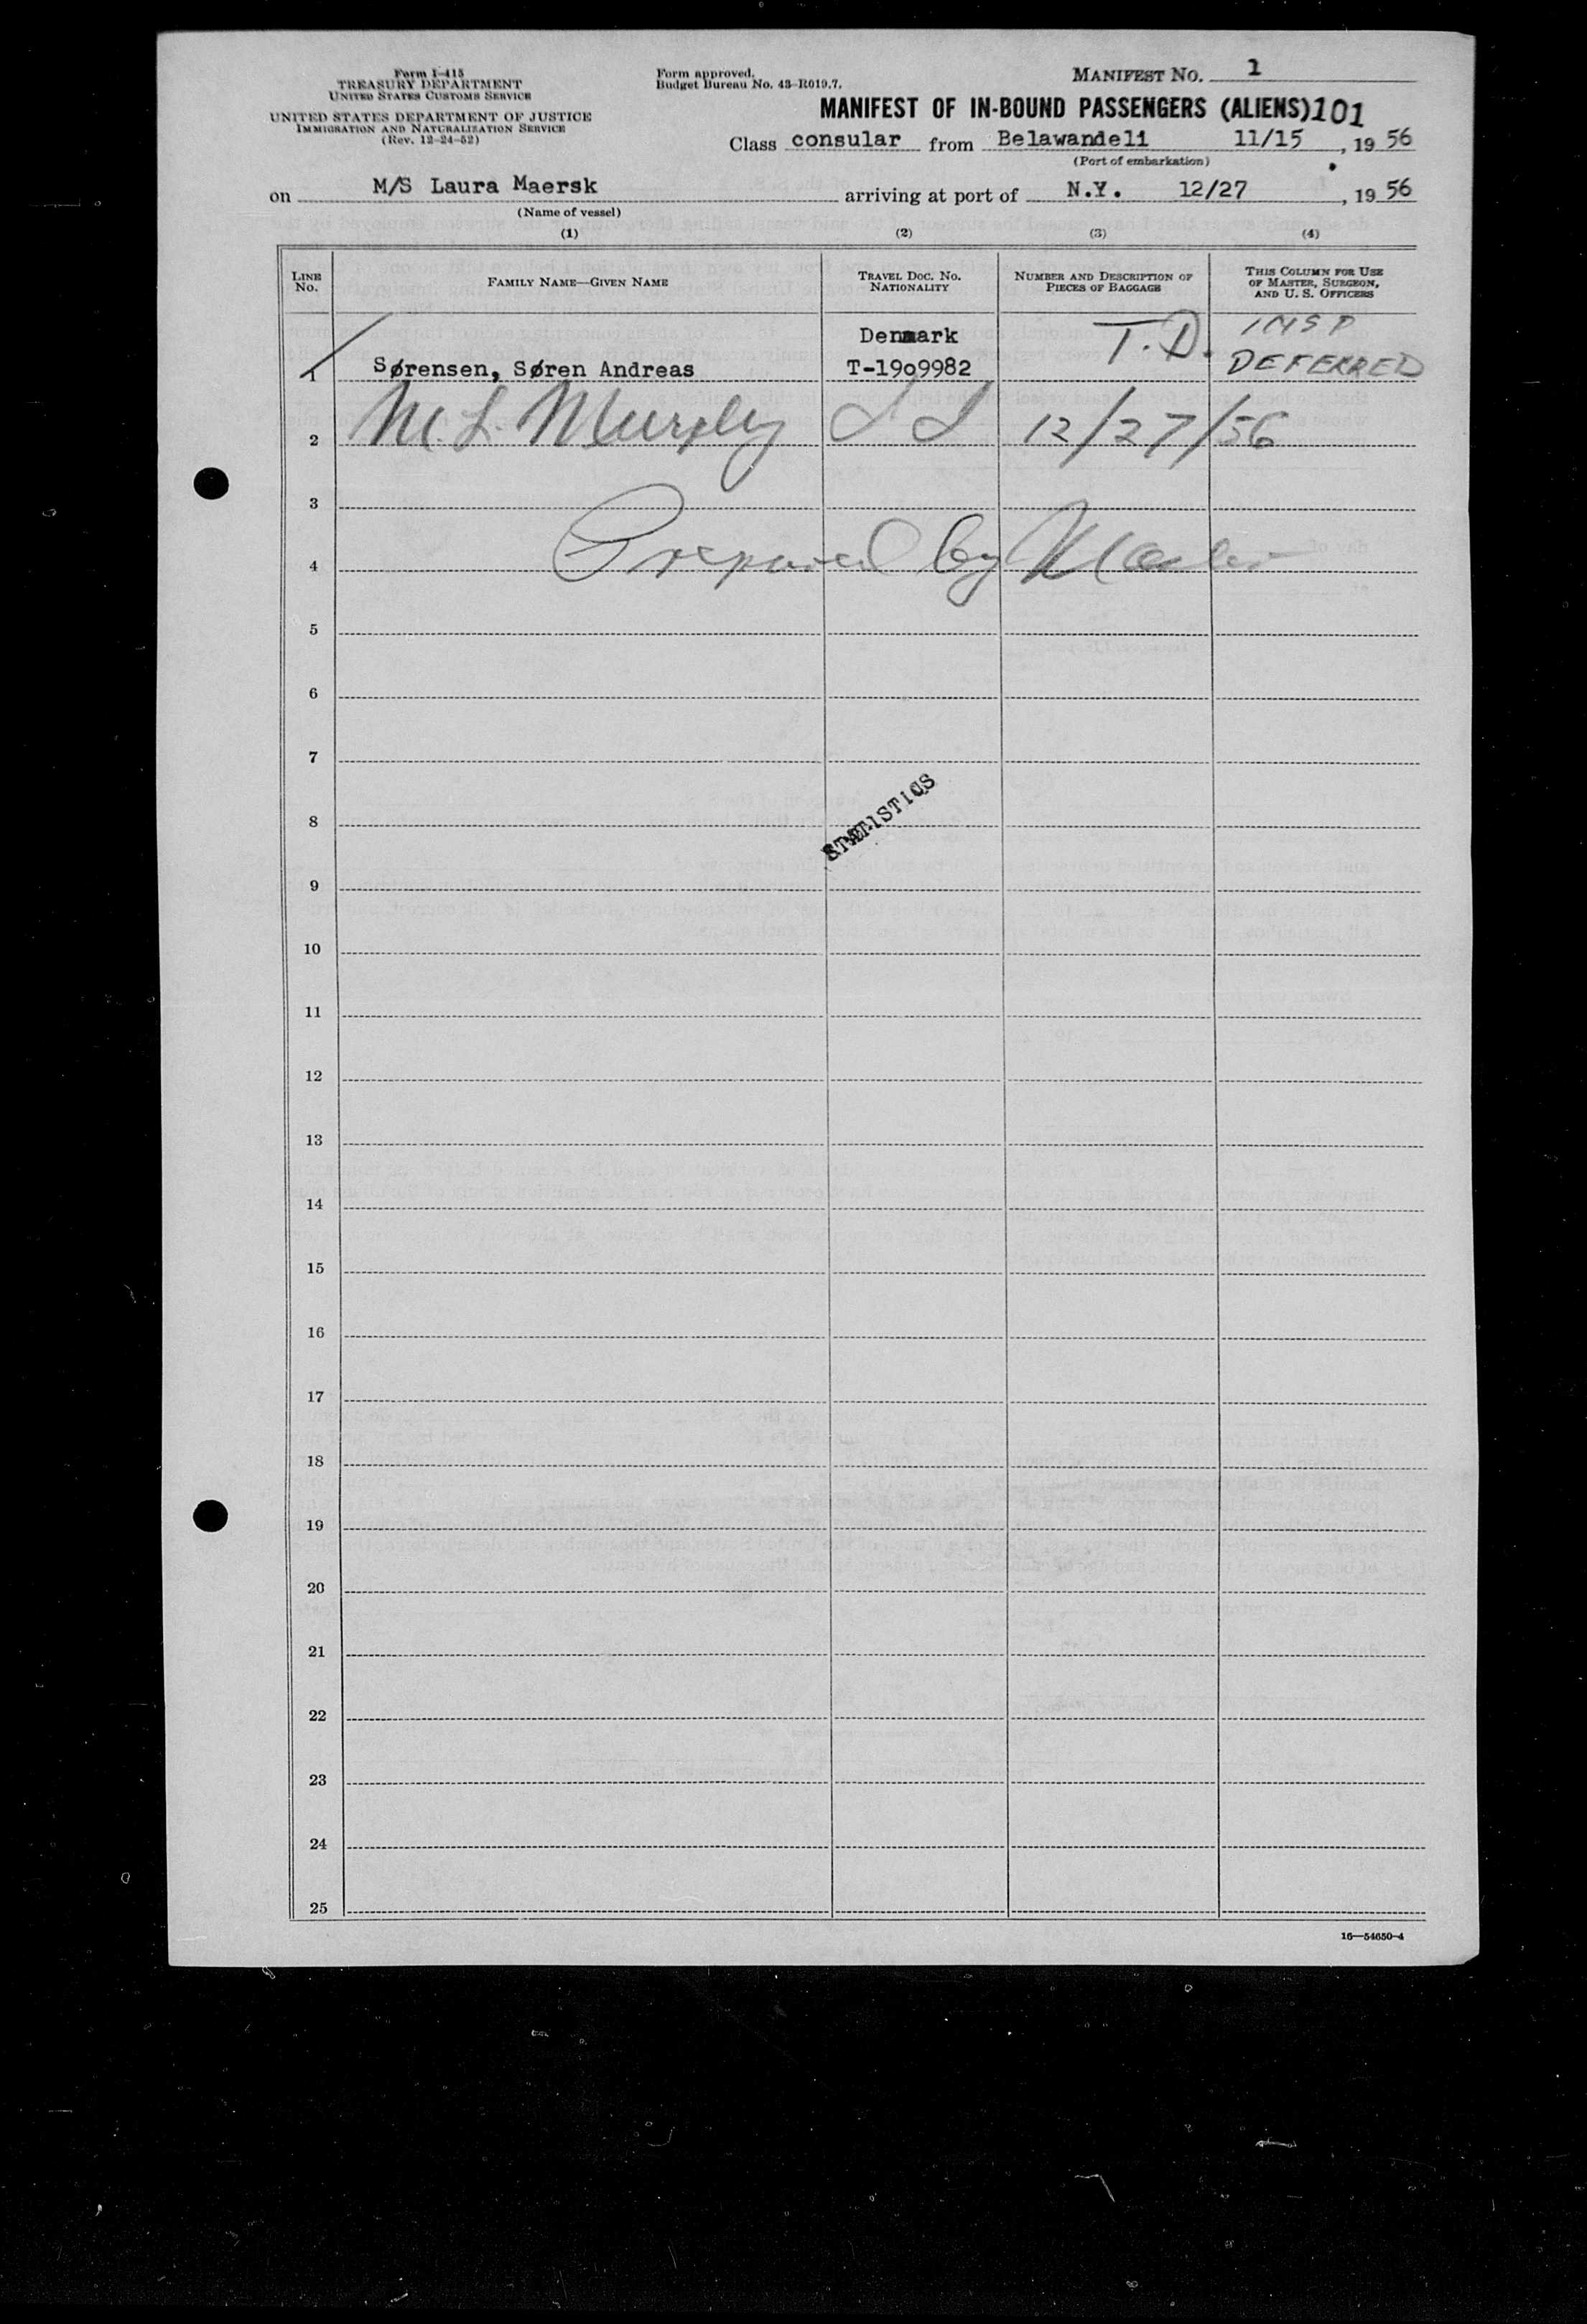 Form I-415
TREASURY DEPARTMENT
UNITED STATES CUSTOMS SERVICE
UNITED STATES DEPARTMENT OF JUSTICE
IMMIGRATION AND NATURALIZATION SERVICE
(Rev. 12-24-52)
Form approved.
Budget Bureau No. 43-R019.7.
MANIFEST NO. 1
MANIFEST OF IN-BOUND PASSENGERS (ALIENS) 101
Class consular from Belawandeli 11/15, 1956
(Port of embarkation)
on M/S Laura Maersk arriving at port of N.Y. 12/27, 1956
(Name of vessel)
(1) (2) (3) (4)
LINE NO. FAMILY NAME—GIVEN NAME TRAVEL DOC. NO. NATIONALITY NUMBER AND DESCRIPTION OF PIECES OF BAGGAGE THIS COLUMN FOR USE OF MASTER, SURGEON, AND U. S. OFFICERS
Denmark T.D. INSP
1 Sørensen, Søren Andreas T-1909982 DEFERRED
2 M. L. Murphy 12/27/56
3
4 Prepared by
5
6
7
8 STATISTICS
9
10
11
12
13
14
15
16
17
18
19
20
21
22
23
24
25
16—54650-4